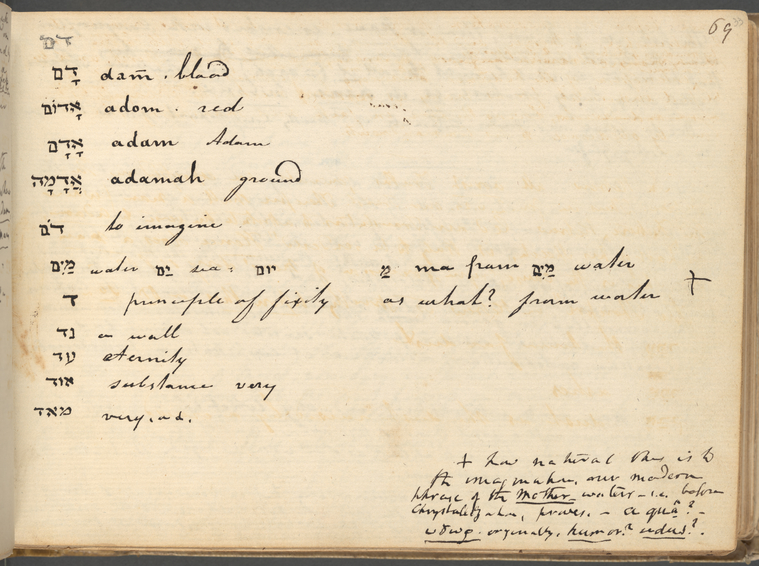 69
דם
דָּם dam̄. blood
אָדוֹם adom. red
אָדָם adam Adam
אֲדָמָה adamah ground
דֹם to imagine
מַיִם water יַם sea: יום מַ ma from מַיִם water
ד principle of fixity as what? from water +
נד a wall
עד eternity
אוד substance very
מאד very, ad.
+ how natural this is to
the imagination, our modern
phrase of the mother-waters - i.e. before
Chrystalization, proves. - a quâ? -
ὕδωρ originally, humor? udus?.